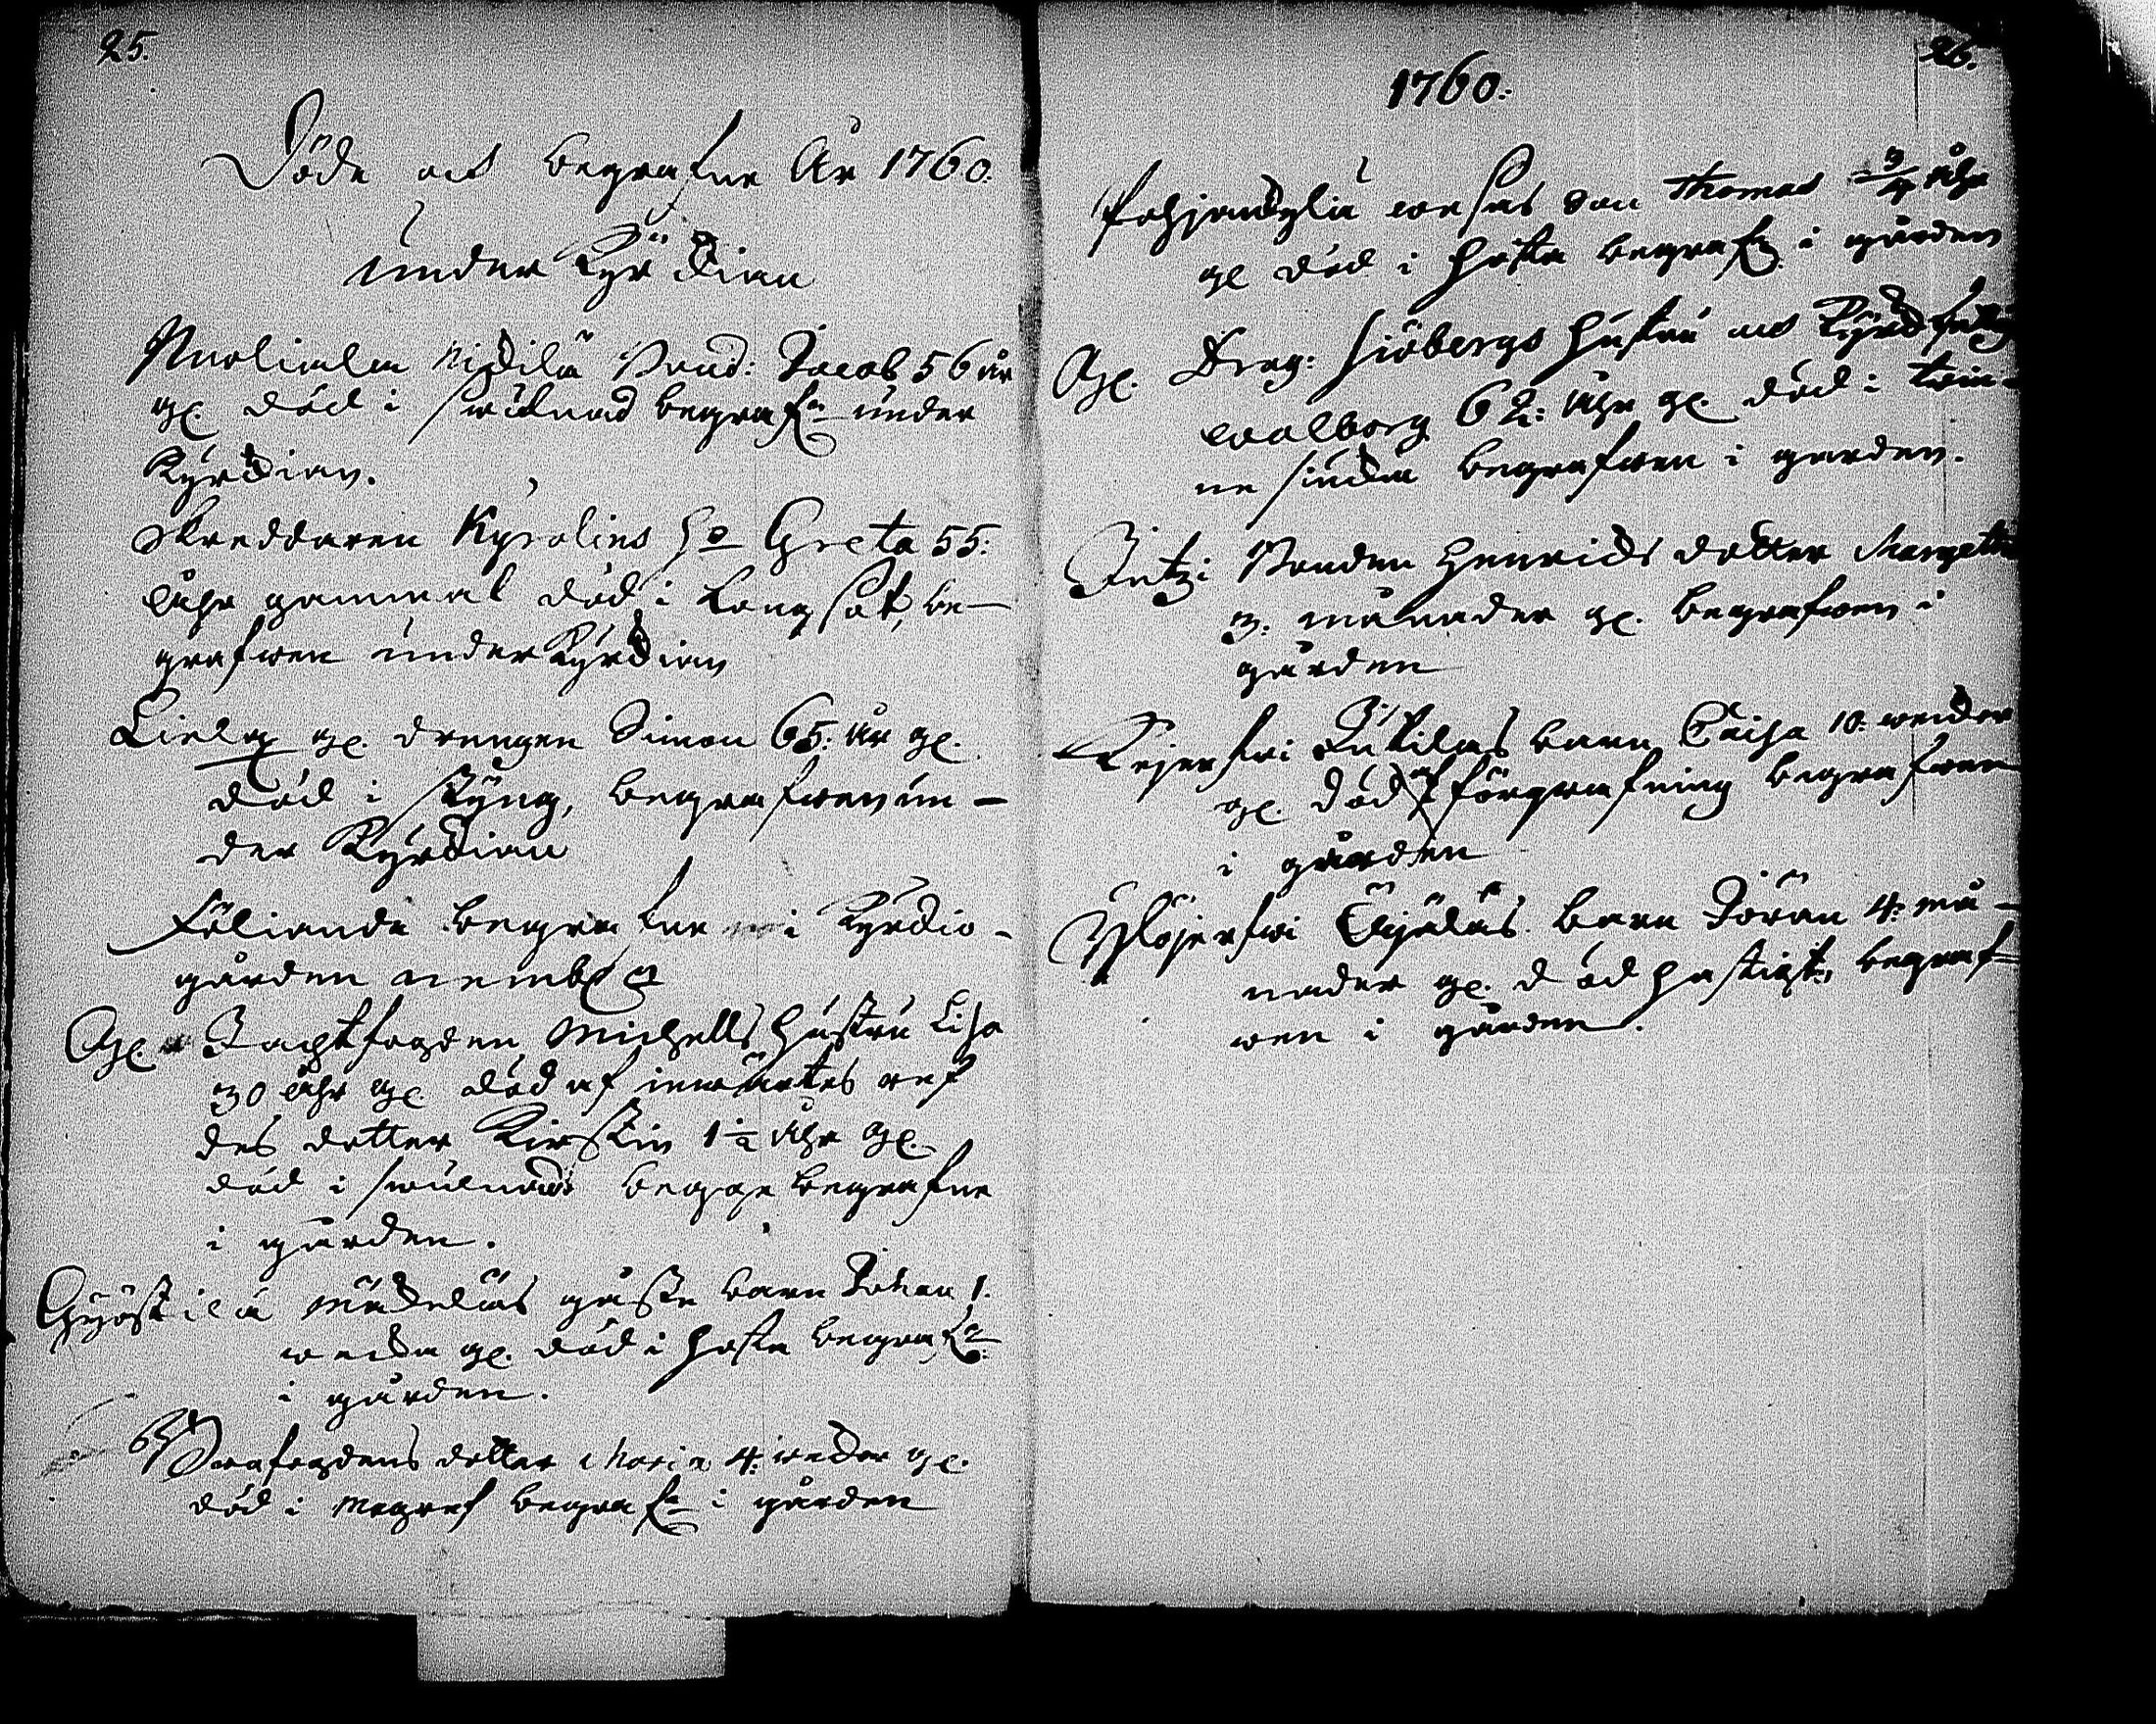 25.
Döde och begrafne År 1760.
under Kyrckian
Mälikylä Nickilä Bond: Jacob 56 år
gl. död i swulnad begrafn under
Kyrckian.
Skreddaren Kyrolins ho Greta 55:
åhr gammal död i Langsot, be-
grafwen under Kyrckian
gl. drengen Simon 65: år gl.
död i styng, begrafwen un-
der Kyrckian
Följande begrafne i Kyrckio-
gården nembl.
Gl. Jachtfogden Michells hustru Lisa
30 åhr gl. död af inwärtes ref
des dotter Kirstin 1½ åhr gl.
död i swulnad begge begrafne
i gården.
Gyöstilä Mickeläs gäste barn Johan 1.
wecka gl. död i hosta begrafn
i gården.
dotter Maria 4. weckor gl.
död i magref begrafn i gården
26.
1760.
Pohjankylä son Thomas ¾ åhr
gl död i hosta begrafn i gården
Gl. Drag: Siöbergs hustru
walborg 62: åhr gl. död i twi-
ne siucka begrafwen i gården.
Jutzi Bonden Henrichs dotter Margetha
3. månader gl. begrafwen i
gården
Antilas barn Caisa 10. weckor
gl. död af förgrafning begrafwen
i gården
Ylöjerfwi Äijäläs barn Jöran 4. må-
nader gl. död hastigt, begraf-
wen i gården.